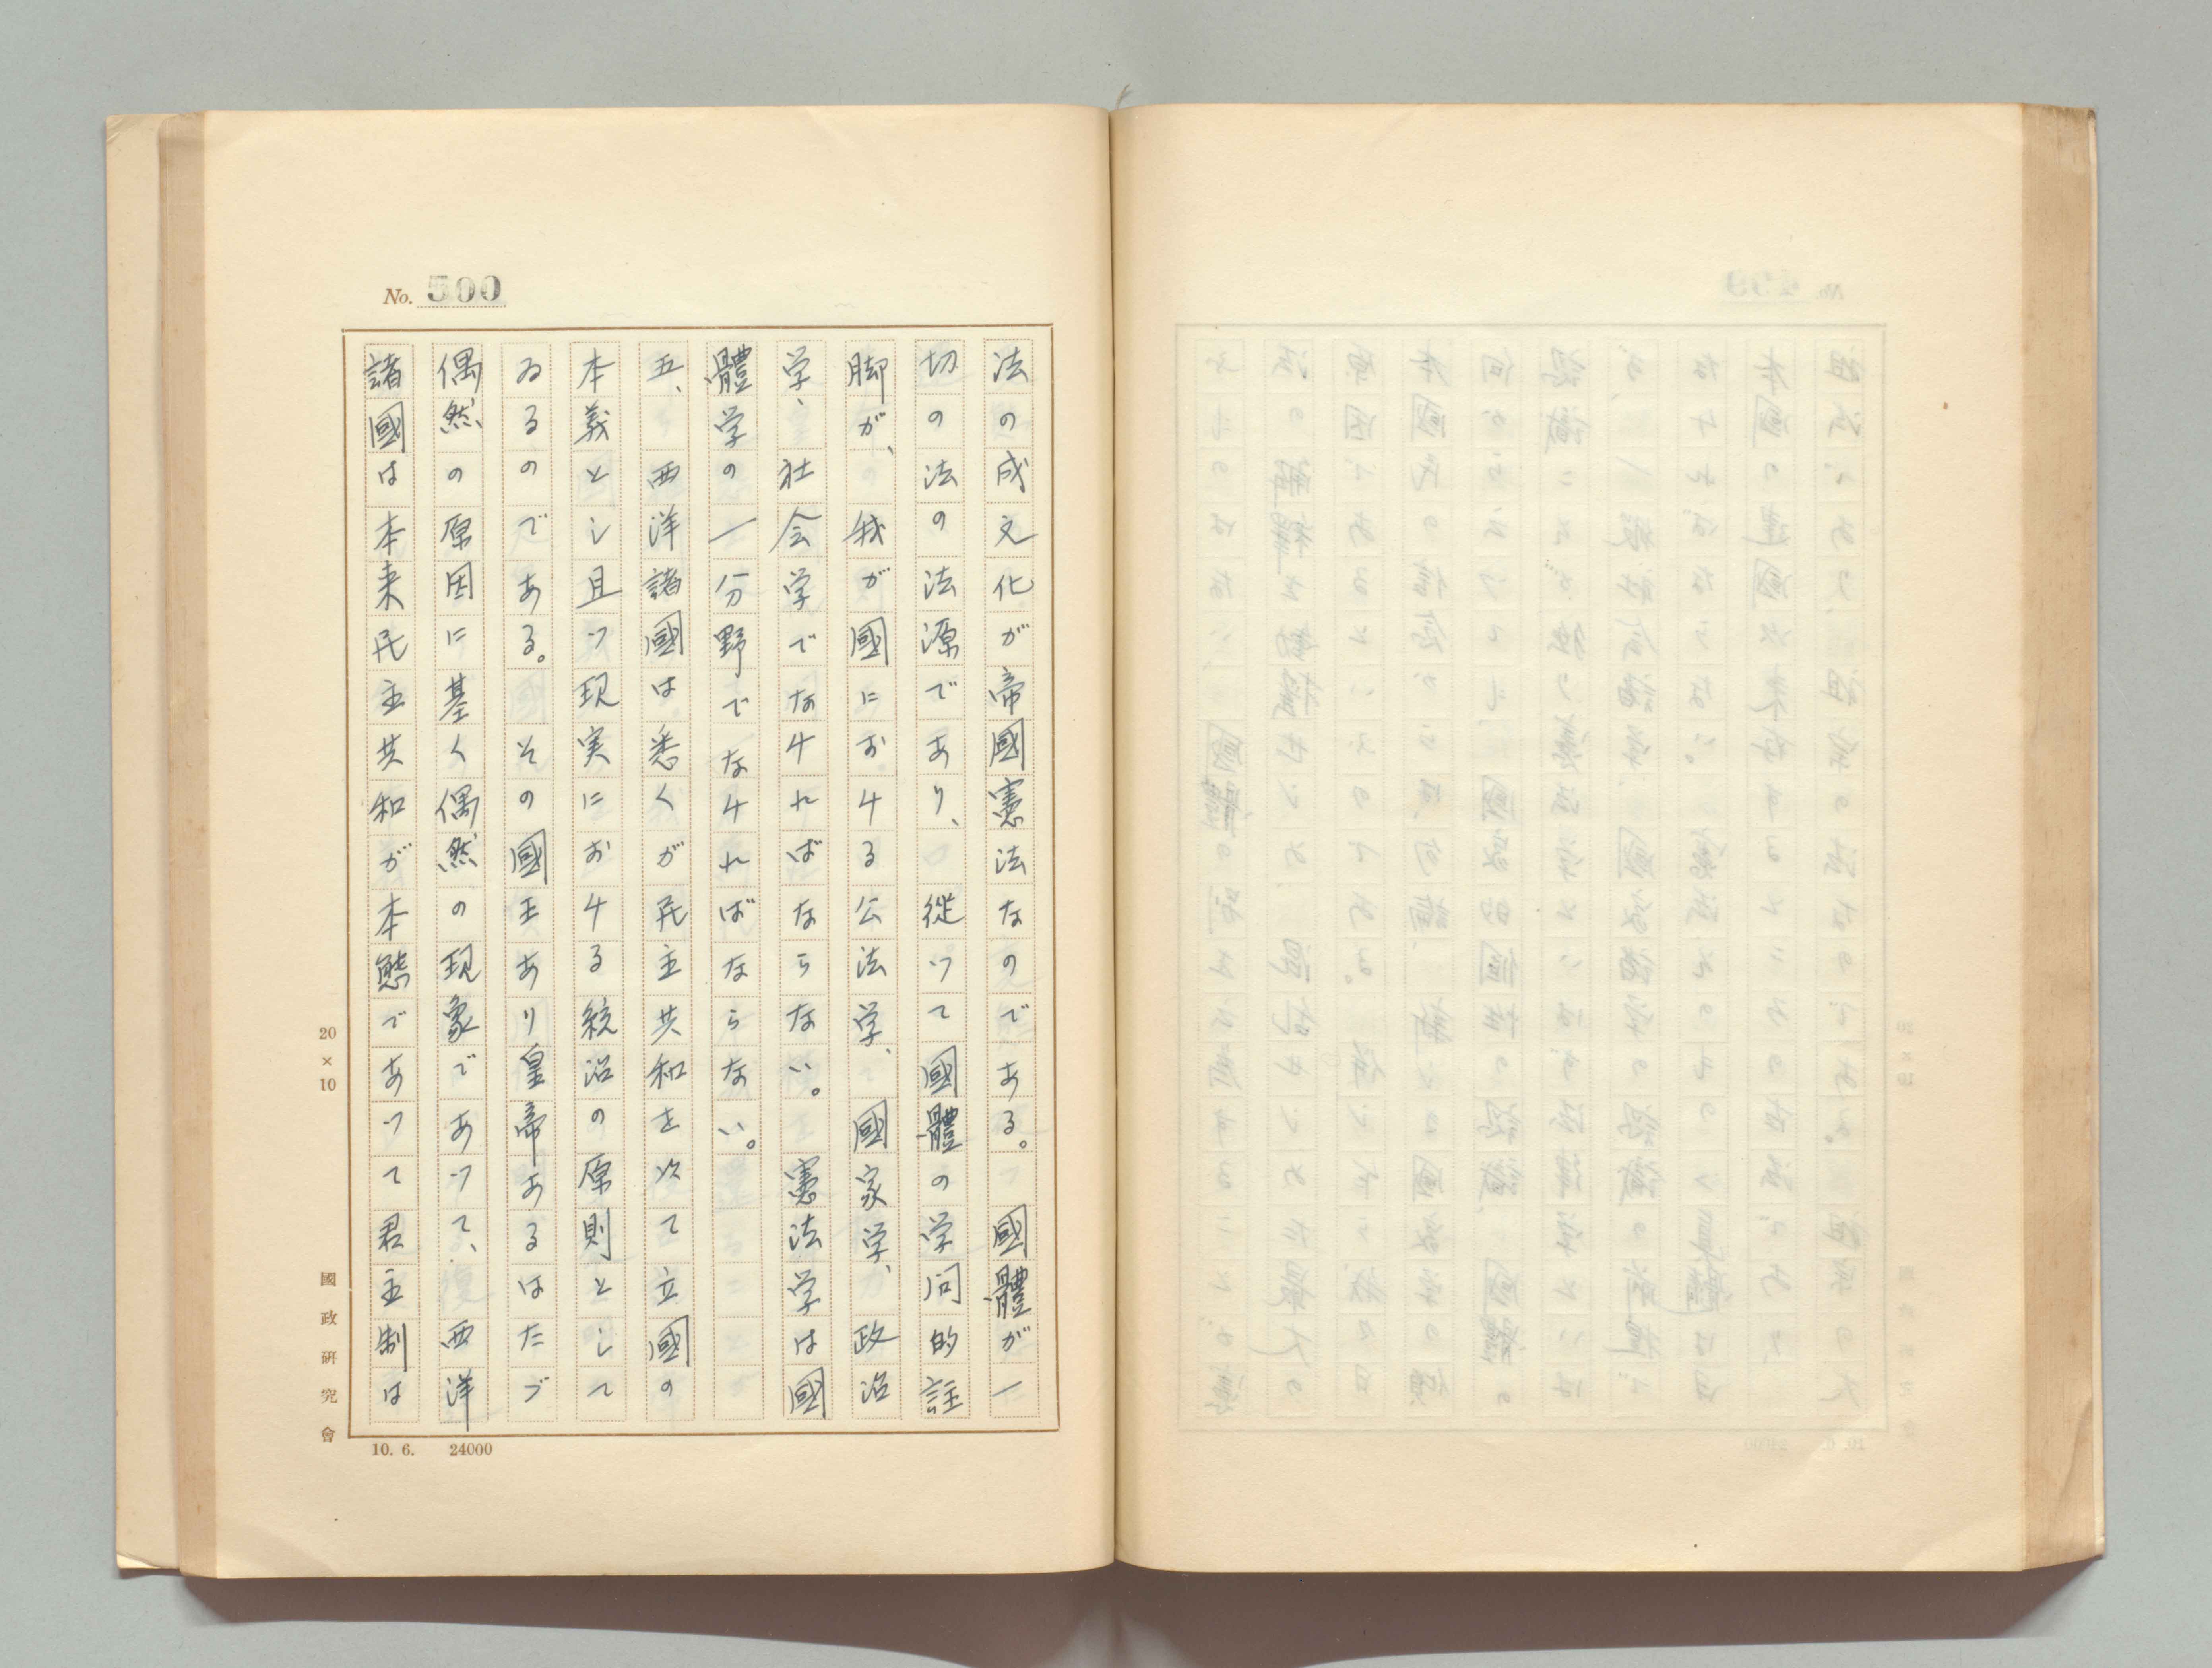 No. 500
法の成文化が帝國憲法なのである。國體が一
切の法の法源であり、從つて國體の学问的註
脚が、我が國における公法学、國家学、政治
学、社会学でなければならない。憲法学は國
體学の一分野でなければならない。
五、西洋諸國は悉くが民主共和を以て立國の
本義とし且つ現実における統治の原則として
ゐるのである。その國王あり皇帝あるはたゞ
偶然の原因に基く偶然の現象であつて、西洋
諸國は本来民主共和が本態であつて君主制は
20×10
國政研究會
10. 6. 24000